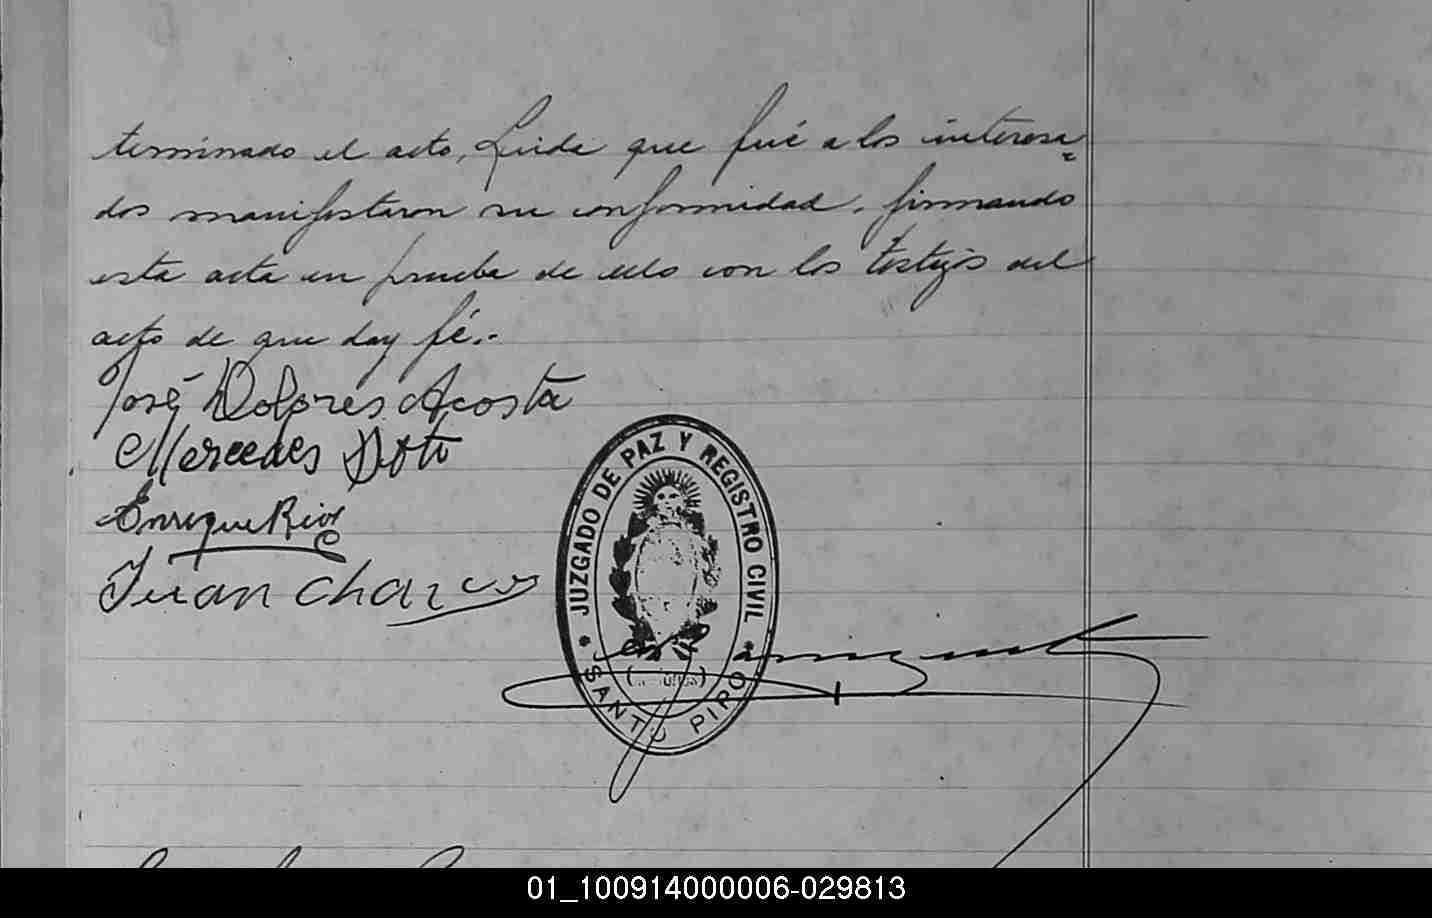 terminado el acto, Leida que fué a los interesa=
dos manifestaron su conformidad, firmando
esta acta en prueba de ello con los testigos del
acto de que doy fé.-
José Dolores Acosta
Mercedes Soto
Enrique Rios
Juan Charcos
JUZGADO DE PAZ Y REGISTRO CIVIL
SANTO PIPO
01_100914000006-029813